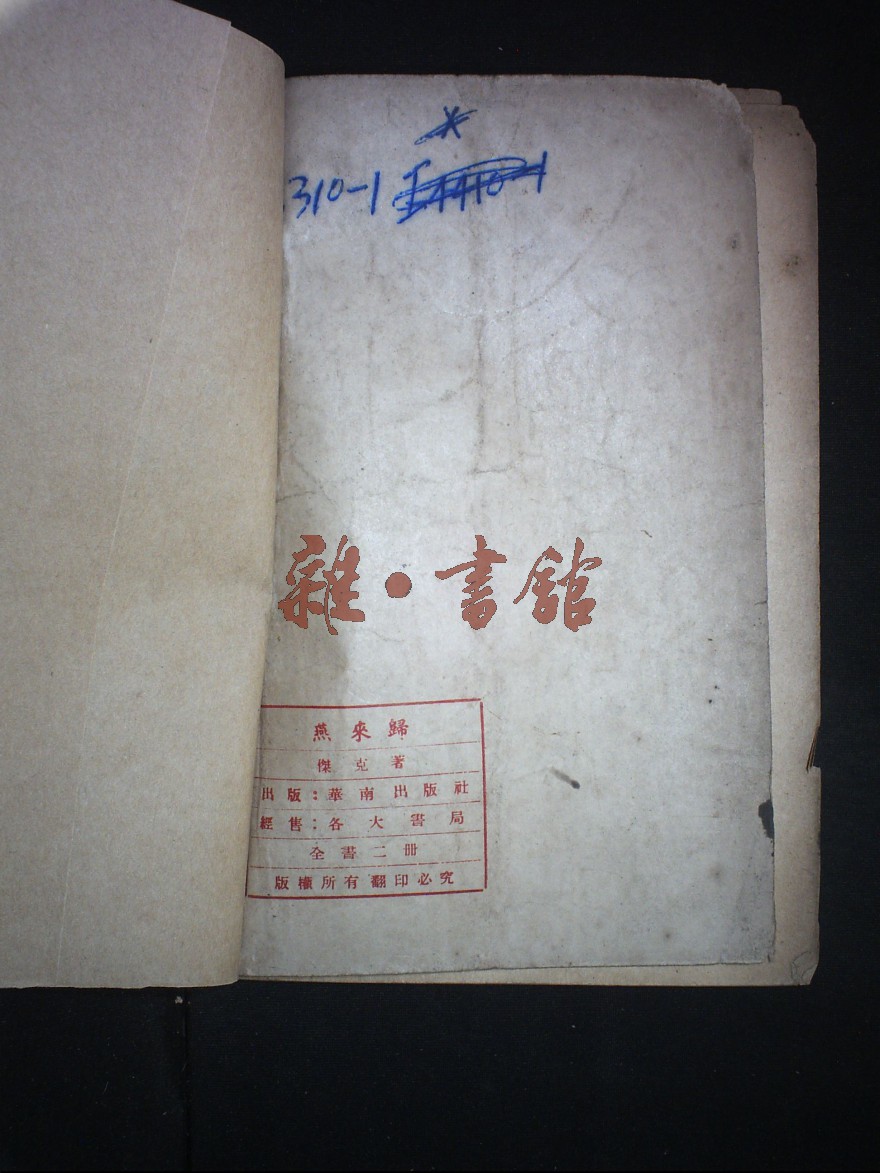 310-1
雜·書館
燕來歸
傑克著
出版：華南出版社
經售：各大書局
全書二冊
版權所有翻印必究